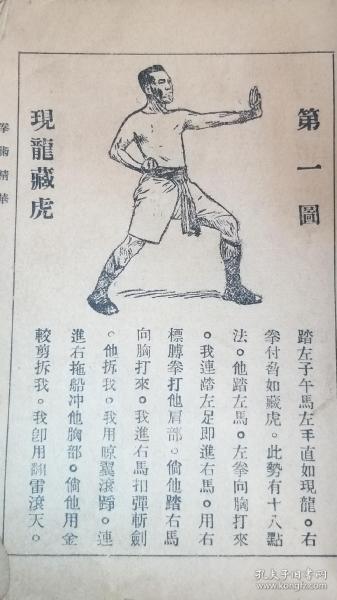 第一圖
現龍藏虎
踏左子午馬左手直如現龍。右
拳付脅如藏虎。此勢有十八點
法。他踏左馬。左拳向胸打來
。我連蹄左足即進右馬。用右
標膊拳打他肩部。倘他踏右馬
向胸打來。我進右馬扣彈斬劍
。他拆我。我用晾翼滾踭。連
進右拖船冲他胸部。倘他用金
較剪拆我。我卽用翻雷滾天。
拳術精華
孔夫子旧书网